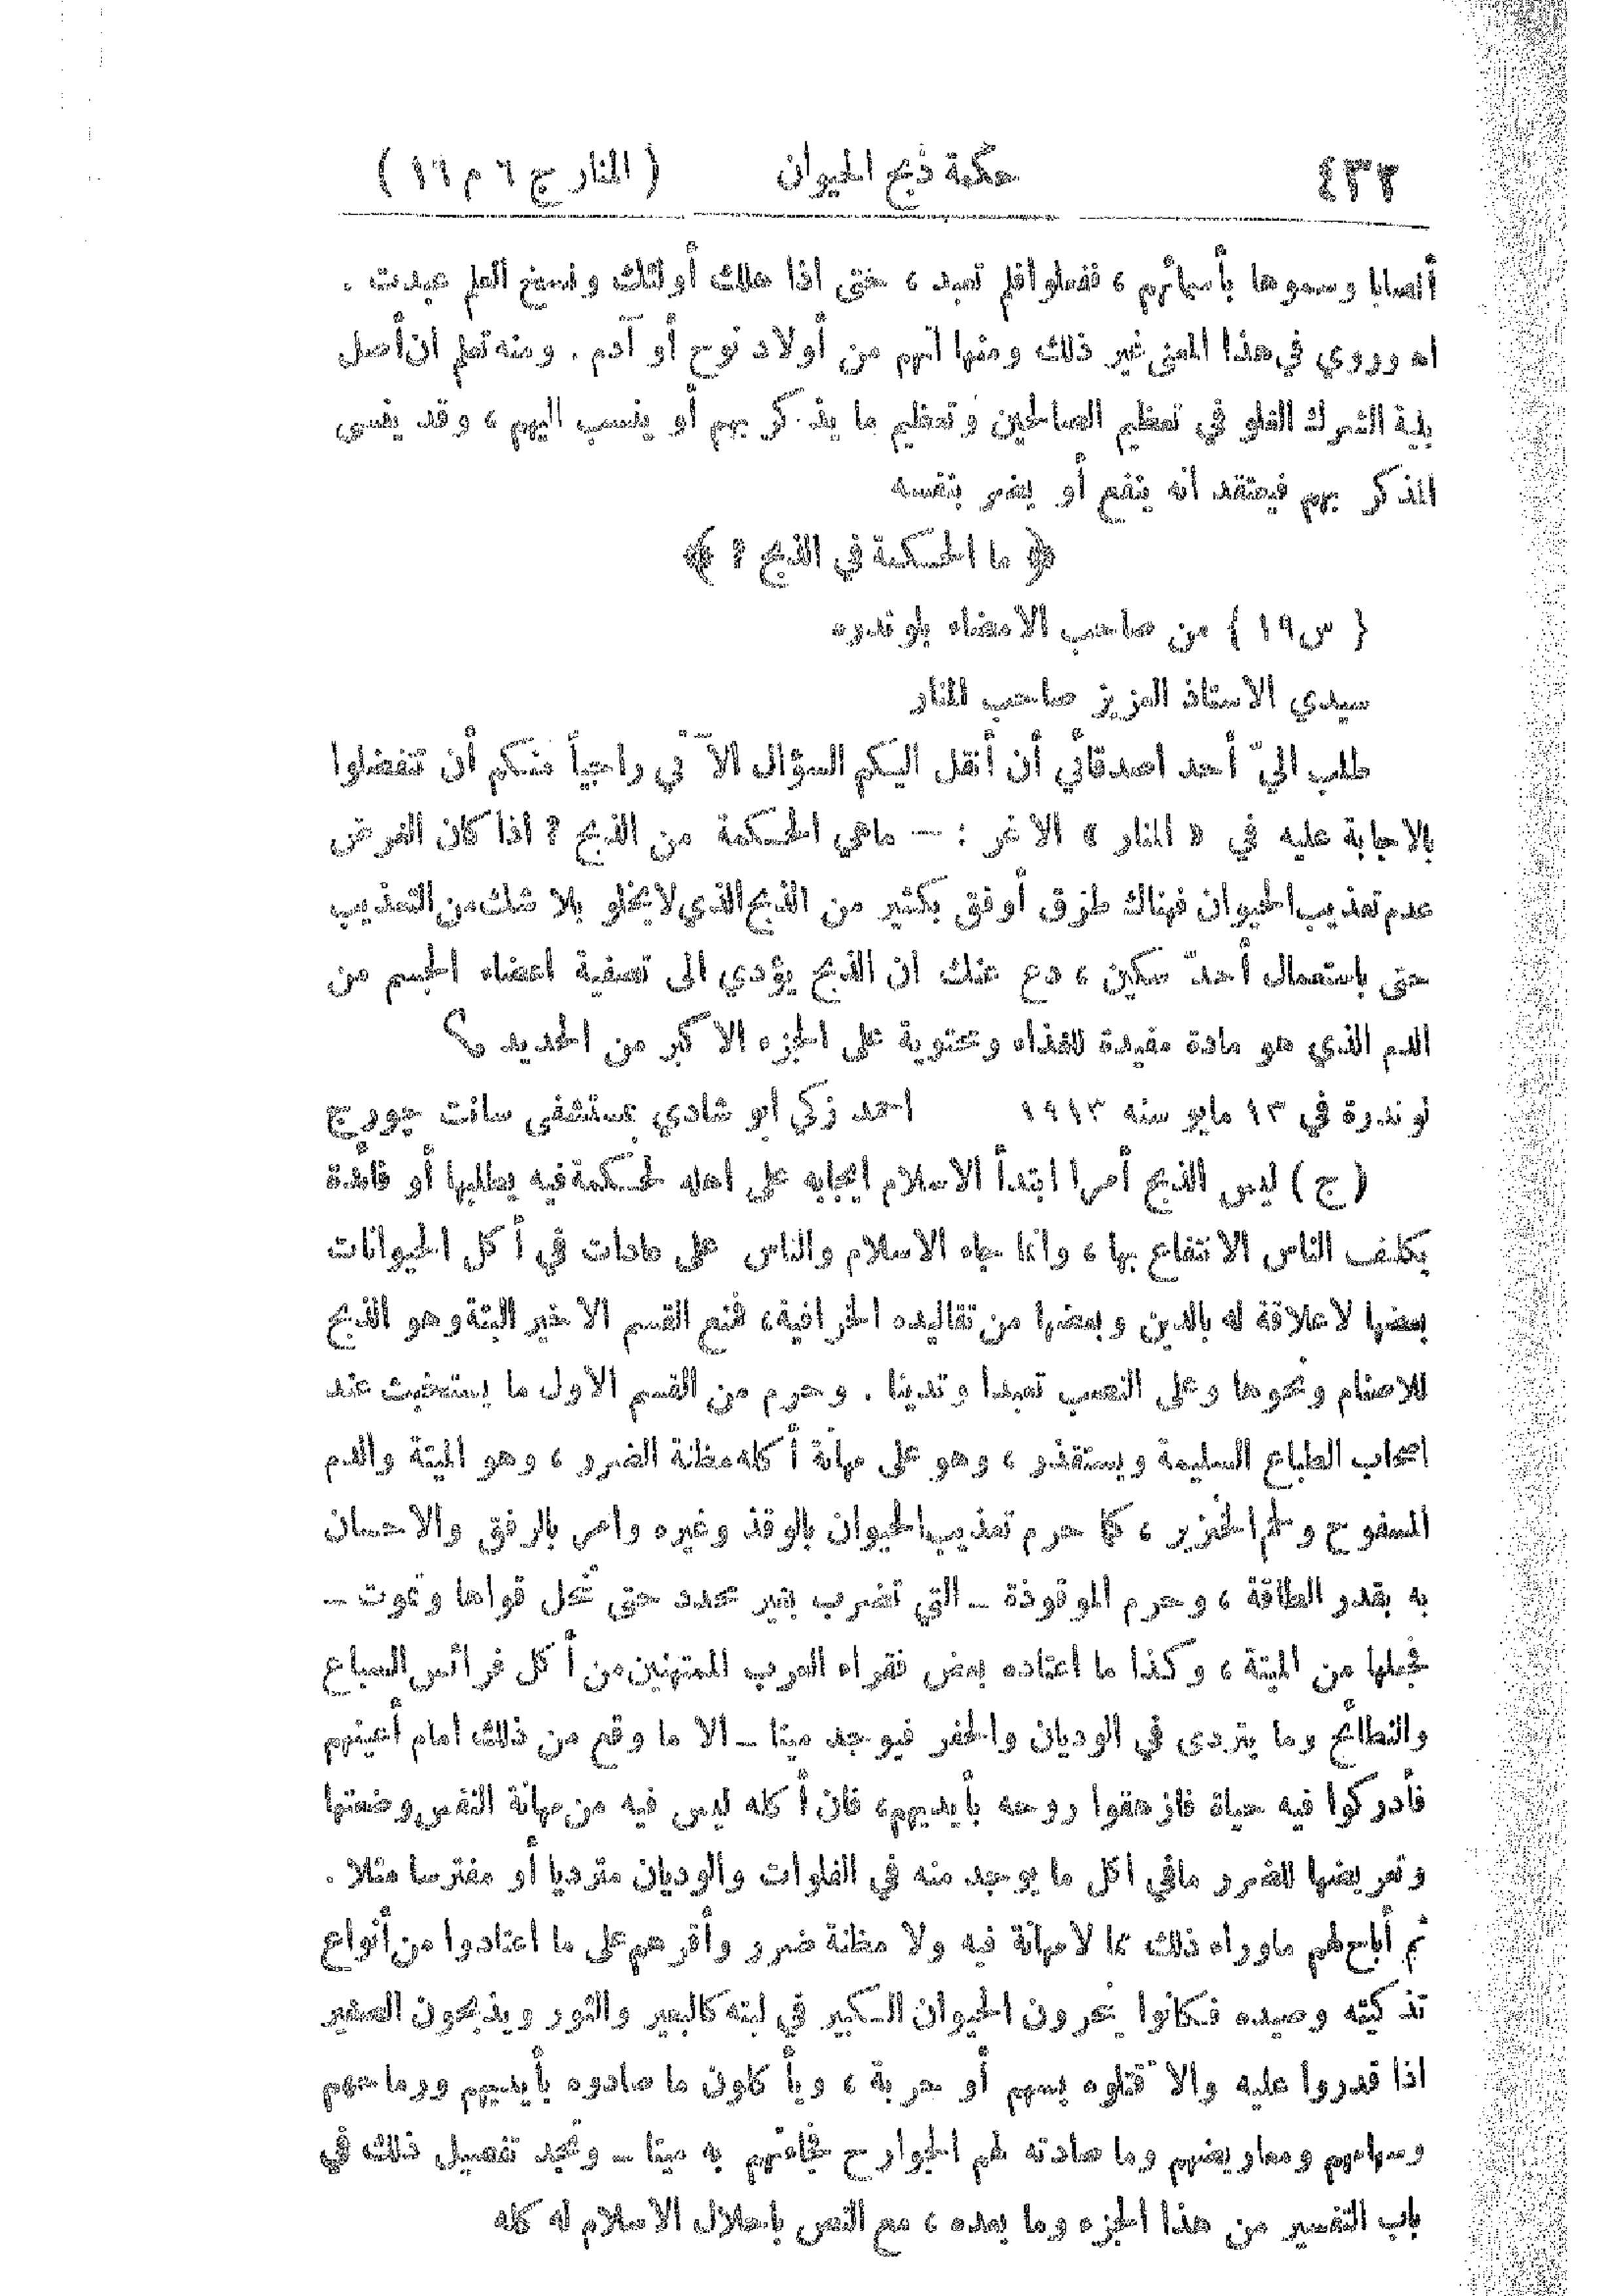 ٤٣٢ حكمة ذبح الحيوان ( المنار ج ٦ م ١٦ )
أنصابا وسموها بأسمائهم ، ففعلوا فلم تعبد ، حتى اذا هلك أولئك ونسخ العلم عبدت .
اه وروي في هذا المعنى غير ذلك ومنها انهم من أولاد نوح أو آدم . ومنه تعلم ان أصل
بلية الشرك الغلو في تعظيم الصالحين وتعظيم ما يذكر بهم أو ينسب اليهم ، وقد ينسى
المذكر بهم فيعتقد انه ينفع أو يضر بنفسه
﴿ ما الحكمة في الذبح ؟ ﴾
{ س ١٩ } من صاحب الامضاء بلوندره
سيدي الاستاذ العزيز صاحب المنار
طلب اليّ أحد اصدقائي أن أنقل اليكم السؤال الآتي راجياً منكم أن تتفضلوا
بالاجابة عليه في « المنار » الاغر : — ماهي الحكمة من الذبح ؟ اذا كان الغرض
عدم تعذيب الحيوان فهناك طرق أوفق بكثير من الذبح الذي لا يخلو بلا شك من التعذيب
حتى باستعمال أحدّ سكين ، دع عنك ان الذبح يؤدي الى تصفية اعضاء الجسم من
الدم الذي هو مادة مفيدة للغذاء ومحتوية على الجزء الاكبر من الحديد ؟
لوندرة في ١٣ مايو سنه ١٩١٣ احمد زكي ابو شادي بمستشفى سانت جورج
(ج) ليس الذبح أمرا ابتدأ الاسلام ايجابه على اهله لحكمة فيه يطلبها أو فائدة
يكلف الناس الانتفاع بها ، وانما جاء الاسلام والناس على عادات في أكل الحيوانات
بعضها لا علاقة له بالدين وبعضها من تقاليده الخرافية ، فمنع القسم الاخير البتة وهو الذبح
للاصنام ونحوها وعلى النصب تعبدا وتدينا . وحرم من القسم الاول ما يستخبث عند
اصحاب الطباع السليمة ويستقذر ، وهو على مهانة أكله مظنة الضرر ، وهو الميتة والدم
المسفوح ولحم الخنزير ، كما حرم تعذيب الحيوان بالوقذ وغيره وامر بالرفق والاحسان
به بقدر الطاقة ، وحرم الموقوذة – التي تضرب بغير محدد حتى تنحل قواها وتموت –
فجعلها من الميتة ، وكذا ما اعتاده بعض فقراء العرب الممتهنين من أكل فرائس السباع
والنطائح وما يتردى في الوديان والحفر فيوجد ميتا – الا ما وقع من ذلك امام أعينهم
فأدركوا فيه حياة فازهقوا روحه بأيديهم ، فان أكله ليس فيه من مهانة النفس وضعتها
وتعريضها للضرر مافي اكل ما يوجد منه في الفلوات والوديان مترديا أو مفترسا مثلا .
ثم أباح لهم ماوراء ذلك مما لا مهانة فيه ولا مظنة ضرر وأقرهم على ما اعتادوا من أنواع
تذكيته وصيده فكانوا ينحرون الحيوان الكبير في لبته كالبعير والثور ويذبحون الصغير
اذا قدروا عليه والا قتلوه بسهم أو حربة ، ويأكلون ما صادوه بأيديهم ورماحهم
وسهامهم ومعاريضهم وما صادته لهم الجوارح فجاءتهم به ميتا – وتجد تفصيل ذلك في
باب التفسير من هذا الجزء وما بعده ، مع النص باحلال الاسلام له كله